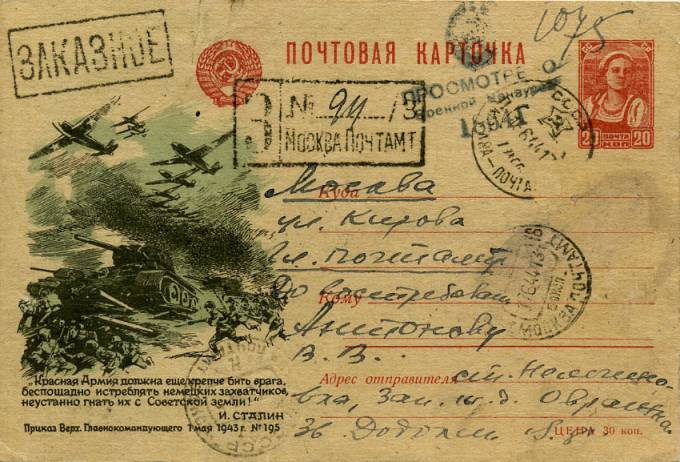 ЗАКАЗНОЕ
ПОЧТОВАЯ КАРТОЧКА
1075
ПРОСМОТРЕНО
Военной Цензурой
З № 94
МОСКВА ПОЧТАМТ
20 ПОЧТА 20
КОП
Куда Москва
ул. Кирова
гл. почтамт
до востребован
Кому Антонову
В. В.
Адрес отправителя: ст.
вка, Зап. ж. д.
36
„Красная Армия должна еще крепче бить врага,
беспощадно истреблять немецких захватчиков,
неустанно гнать их с Советской земли!"
И. СТАЛИН
Приказ Верх. Главнокомандующего 1 мая 1943 г. № 195
ЦЕНА 30 коп.